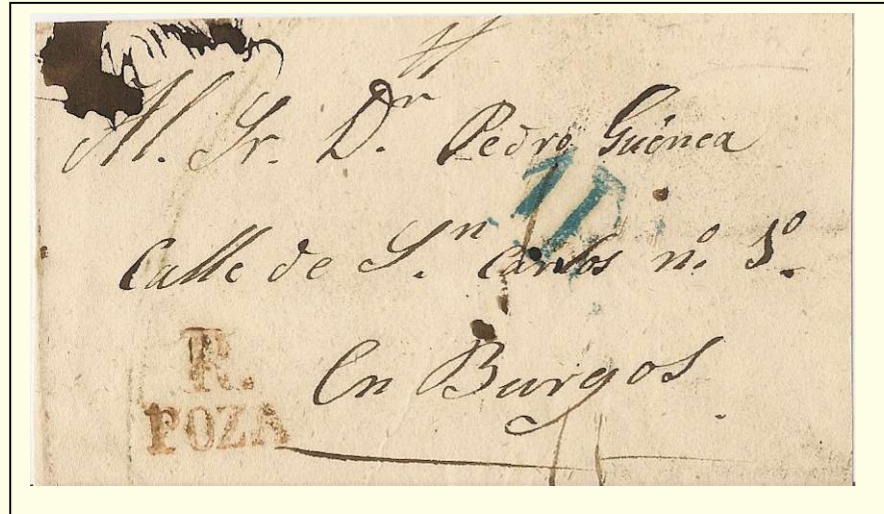 Al. Sr. Dn. Pedro Guénea
Calle de Sn. Carlos no. 1o.
En Burgos
R.
POZA